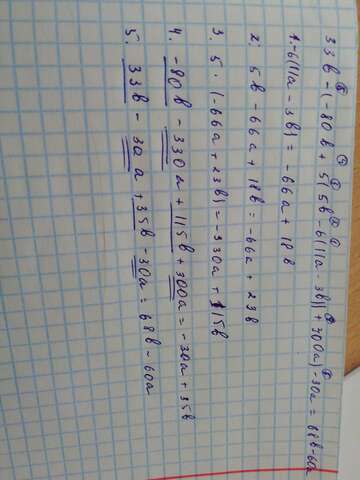 33b - (-80b + 5(5b - 6(11a - 3b)) + 300a) - 30a = 68b - 60a
1. -6(11a - 3b) = -66a + 18b
2. 5b - 66a + 18b = -66a + 23b
3. 5 · (-66a + 23b) = -330a + 115b
4. -80b - 330a + 115b + 300a = -30a + 35b
5. 33b - 30a + 35b - 30a = 68b - 60a